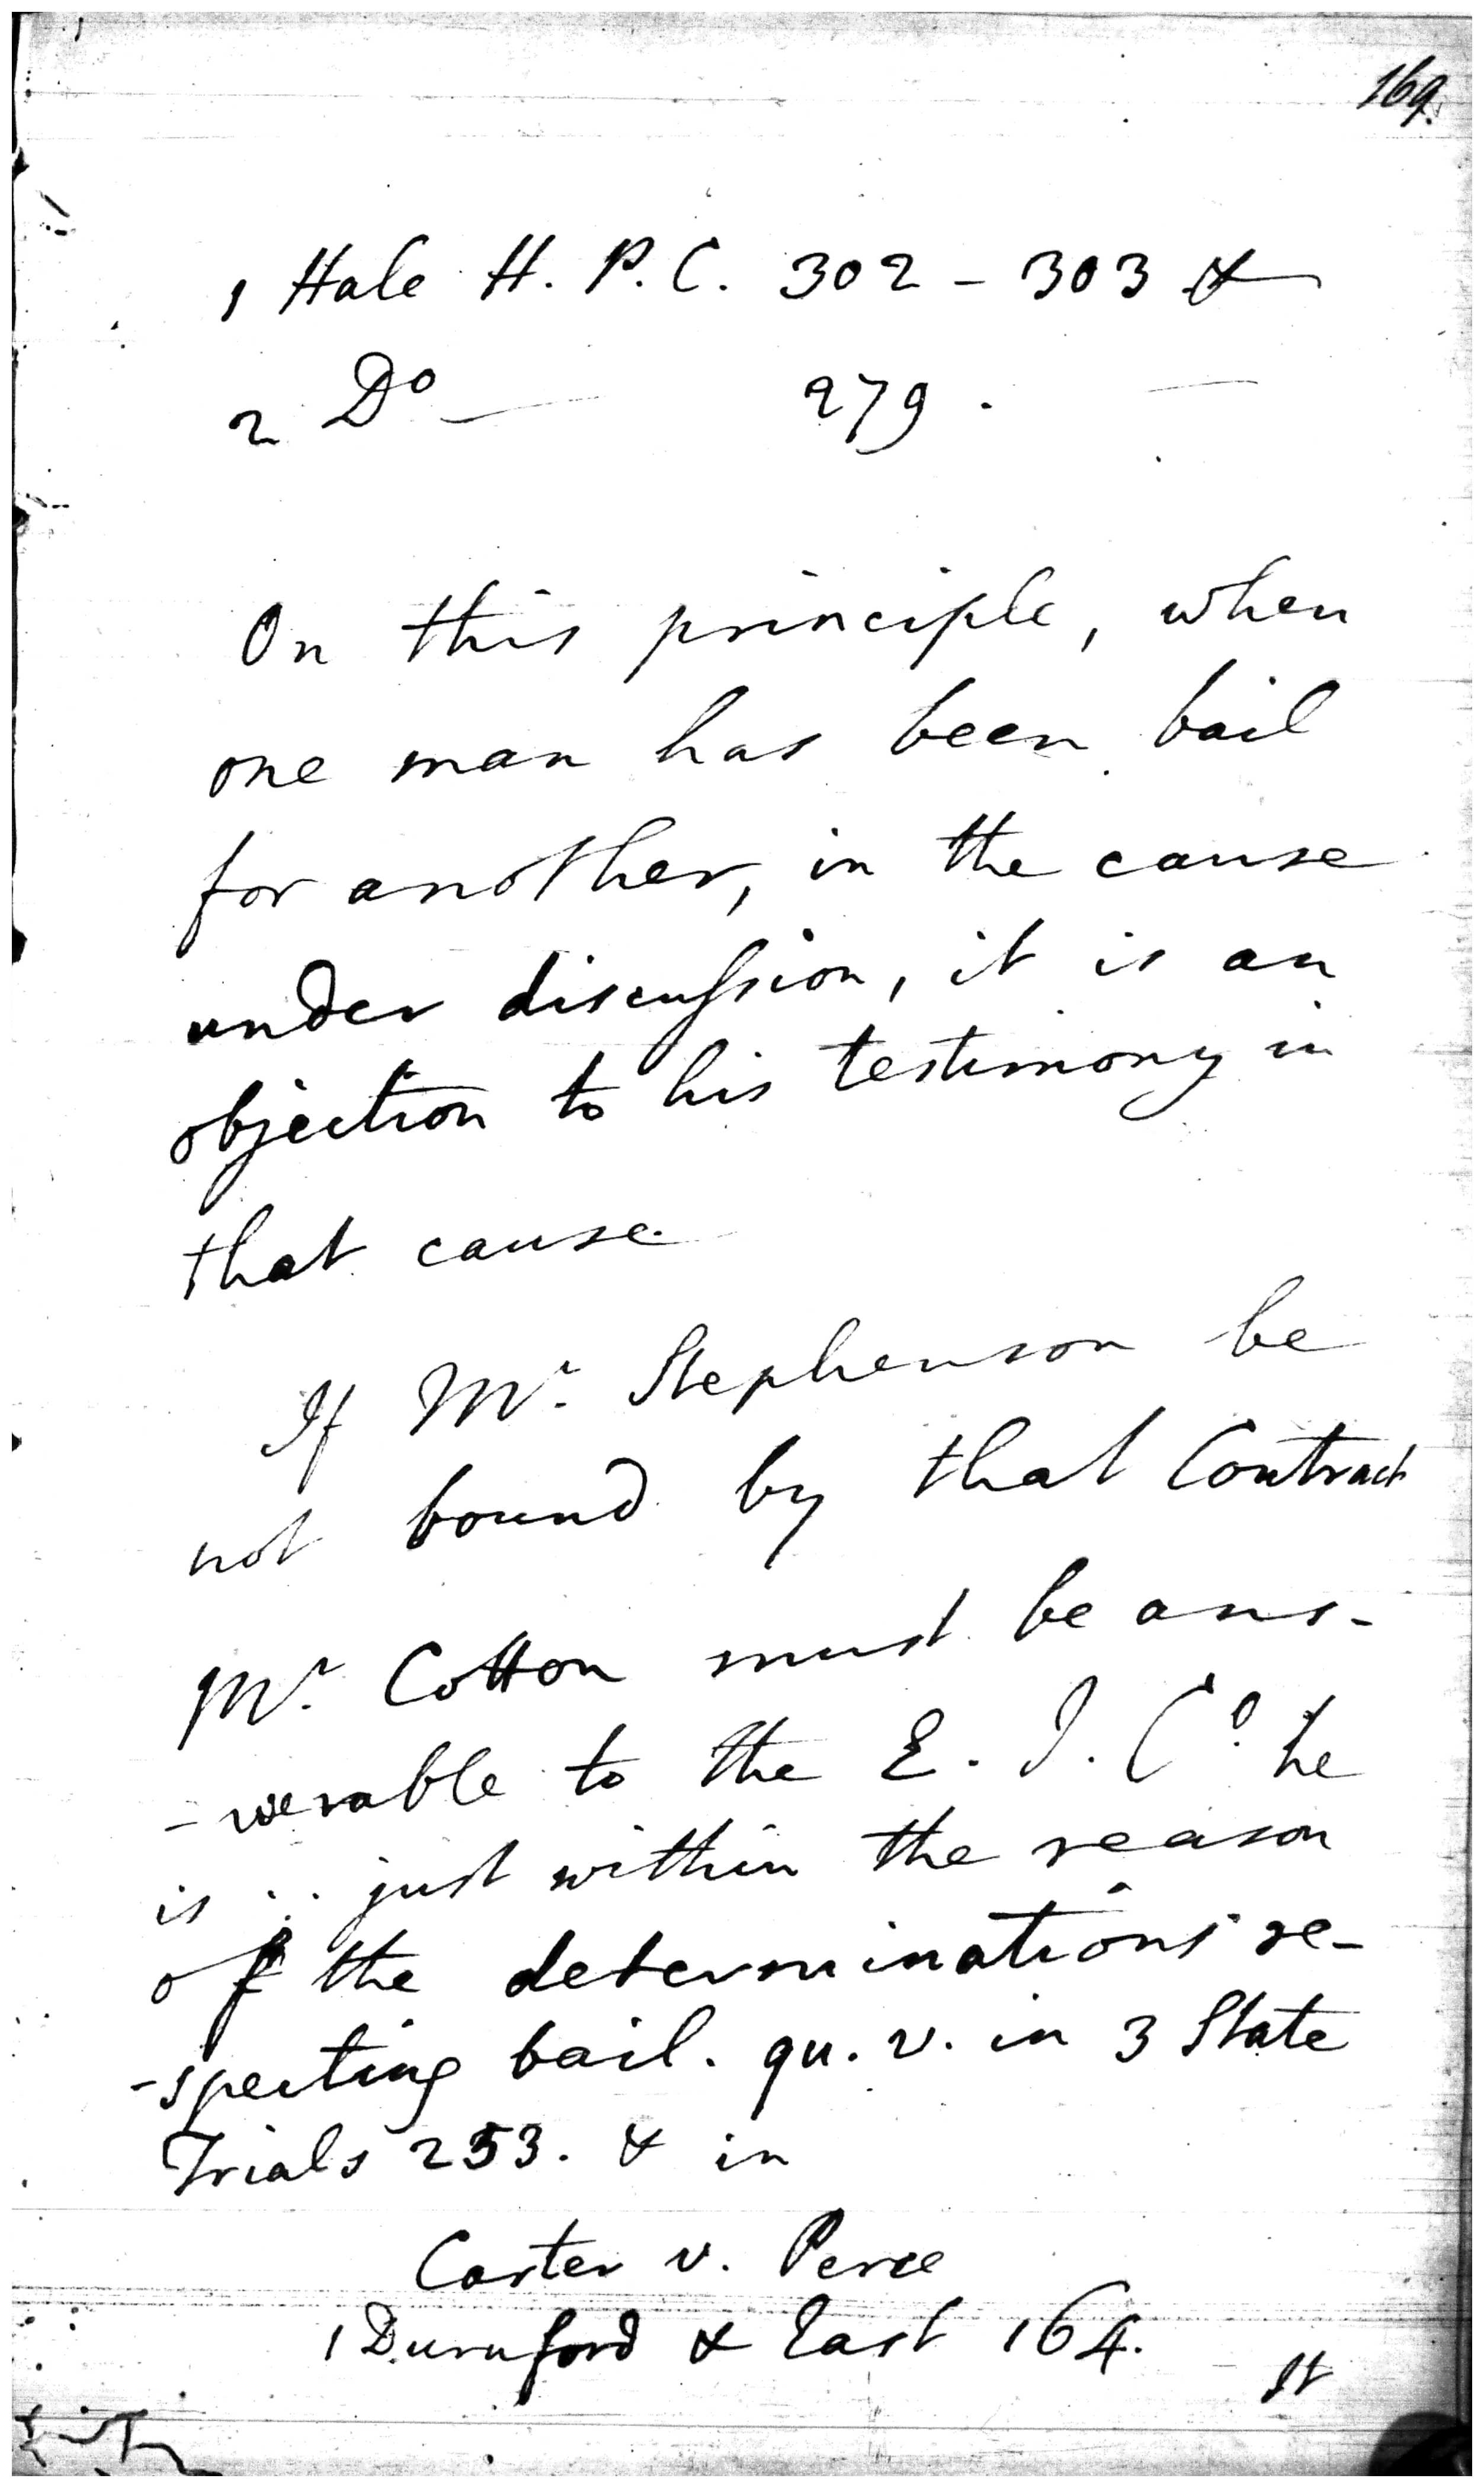 169.
1 Hale H. P. C. 302 - 303 &
2 Do — 279. —
On this principle, when
one man has been bail
for another, in the cause
under discuſsion, it is an
objection to his testimony in
that cause.
If Mr. Stephenson be
not bound by that Contract
Mr. Cotton must be ans-
-werable to the E. I. Co. he
is just within the reason
of the determinations re-
-specting bail. qu. v. in 3 State
Trials 253. & in
Carter v. Perce
1 Durnford & East 164.
It